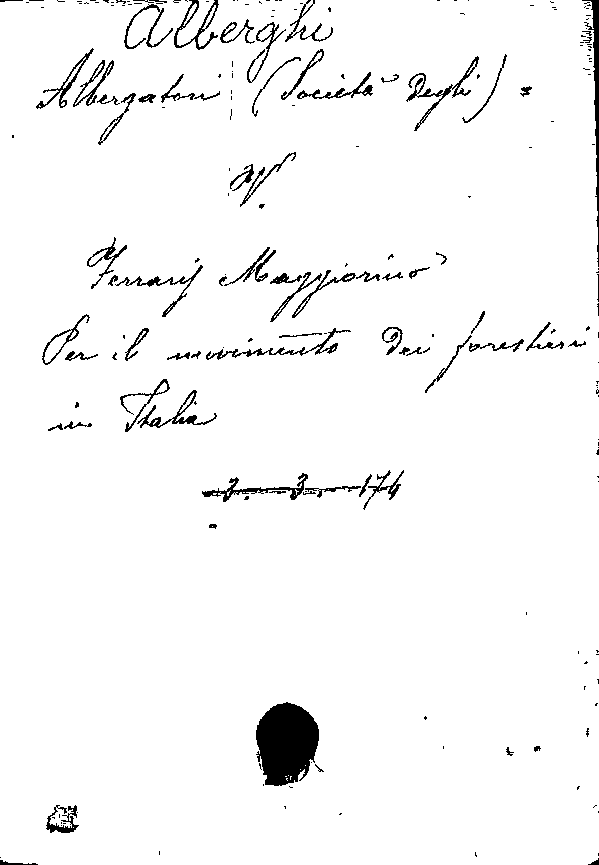 Alberghi
Albergatori (Società degli) =
V.
Ferraris Maggiorino
Per il movimento dei forestieri
in Italia
3. 3. 174